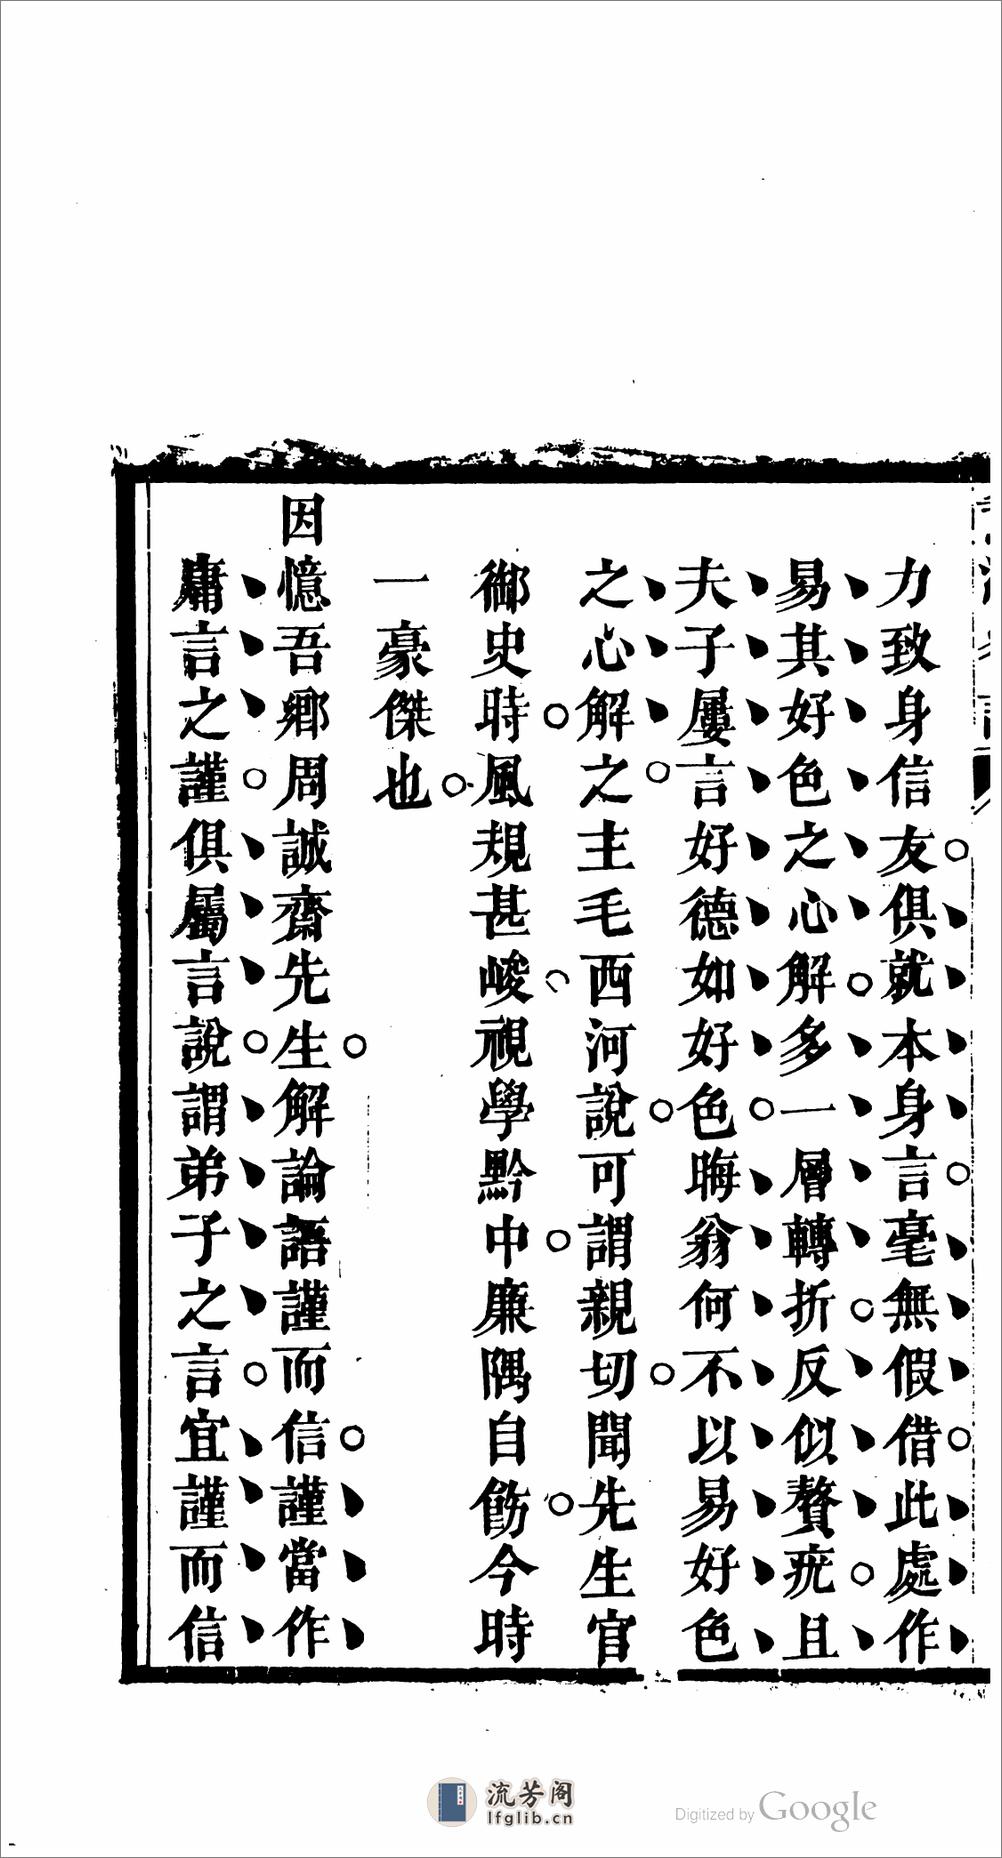 力致身信友俱就本身言毫無假借此處作
易其好色之心解多一層轉折反似贅疣且
夫子屢言好德如好色晦翁何不以易好色
之心解之主毛西河說可謂親切聞先生官
御史時風規甚峻視學黔中廉隅自飭今時
一豪傑也
因憶吾鄉周誠齋先生解論語謹而信謹當作
庸言之謹俱屬言說謂弟子之言宜謹而信
流芳阁
lfglib.cn
Digitized by Google